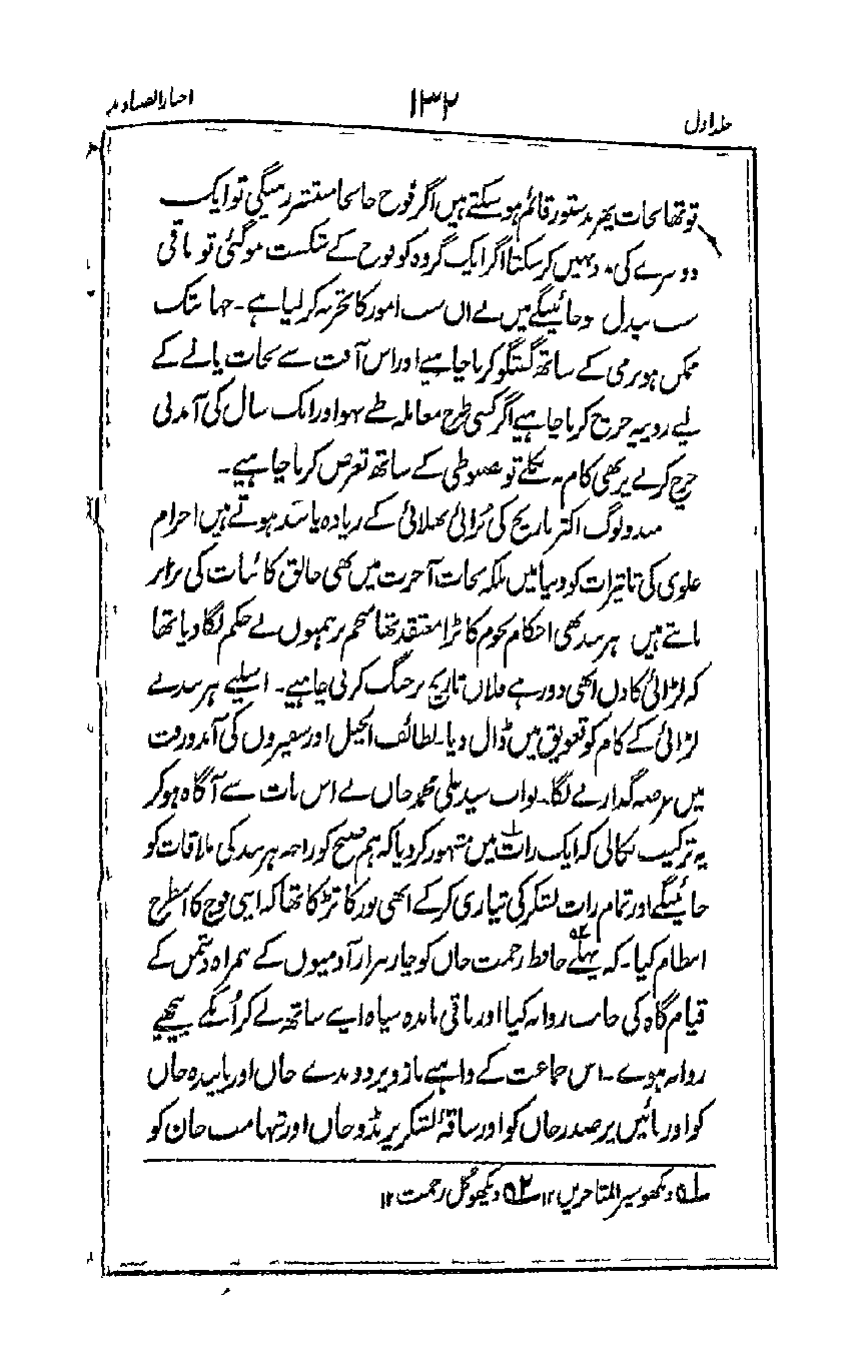 جلد اول
۱۳۲
اخبار الصنادید
تو تھانجات پھر بدستور قائم ہوسکتے ہیں اگر فوج جابجا منتشر رہیگی تو ایک
دوسرے کی مدد نہیں کرسکتا اگر ایک گروہ کو فوج کے شکست ہوگئی تو باقی
سب بیدل ہوجائینگے میں نے ان سب امور کا تجربہ کرلیا ہے۔ جہانتک
ممکن ہو نرمی کے ساتھ گفتگو کرنا چاہیے اور اس آفت سے نجات پانے کے
لیے روپیہ خرچ کرنا چاہیے اگر کسی طرح معاملہ طے نہو اور ایک سال کی آمدنی
خرچ کرنے پر بھی کام نہ نکلے تو مضبوطی کے ساتھ تعرض کرنا چاہیے۔
ہندو لوگ اکثر تاریخ کی بُرائی بھلائی کے زیادہ پابند ہوتے ہیں اجرام
علوی کی تاثیرات کو دنیا میں بلکہ نجات آخرت میں بھی خالق کائنات کی برابر
مانتے ہیں ہرنند بھی احکام نجوم کا بڑا معتقد تھا منجم برہمنوں نے حکم لگا دیا تھا
کہ لڑائی کا دن ابھی دور ہے فلاں تاریخ پر جنگ کرنی چاہیے۔ اسلیے ہرنند نے
لڑائی کے کام کو تعویق میں ڈال دیا۔ لطائف الحیل اور سفیروں کی آمد ورفت
میں عرصہ گذارنے لگا۔ نواب سید علی محمد خاں نے اس بات سے آگاہ ہوکر
یہ ترکیب نکالی کہ ایک رات میں مشہور کردیا کہ ہم صبح کو راجہ ہرنند کی ملاقات کو
جائینگے اور تمام رات لشکر کی تیاری کرکے ابھی نور کا تڑکا تھا کہ اپنی فوج کا اسطرح
انتظام کیا۔ کہ پہلے حافظ رحمت خاں کو چار ہزار آدمیوں کے ہمراہ دشمن کے
قیام گاہ کی جانب روانہ کیا اور باقی ماندہ سپاہ اپنے ساتھ لے کر اُنکے پیچھے
روانہ ہوے۔ اس جماعت کے داہنے بازو پر دوندے خاں اور پایندہ خاں
کو اور بائیں پر صدر خاں کو اور ساقۂ لشکر پر بڈو خاں اور تہامب خان کو
۱ دیکھو سیر المتاخرین ۱۲ ۲ دیکھو گل رحمت ۱۲